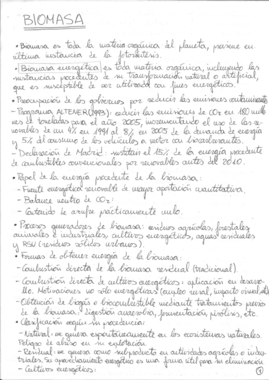 BIOMASA
• Biomasa es toda la materia orgánica del planeta, proviene en
última instancia de la fotosíntesis.
• Biomasa energética es toda materia orgánica, incluyendo las
sustancias procedentes de su transformación natural o artificial,
que es susceptible de ser utilizada con fines energéticos.
• Preocupación de los gobiernos por reducir las emisiones contaminantes
- Programa ALTENER (1993): reducir las emisiones de CO2 en 180 millo-
nes de toneladas para el año 2005, incrementando el uso de las re-
novables de un 4% en 1991 al 8% en 2005 de la demanda de energía
y 5% del consumo de los vehículos a motor con biocarburantes.
- Declaración de Madrid: sustituir el 15% de la energía procedente
de combustibles convencionales por renovables antes del 2010.
• Papel de la energía procedente de la biomasa:
- Fuente energética renovable de mayor aportación cuantitativa.
- Balance neutro de CO2.
- Contenido de azufre prácticamente nulo.
• Procesos generadores de biomasa: residuos agrícolas, forestales,
animales e industriales, cultivos energéticos, aguas residuales
y RSU (residuos sólidos urbanos).
• Formas de obtener energía de la biomasa:
- Combustión directa de la biomasa residual (tradicional)
- Combustión directa de cultivos energéticos: aplicación en desarro-
llo. Motivaciones no sólo energéticas (empleo rural, impacto
- Obtención de biogás o biocombustible mediante tratamientos previos
de la biomasa. Digestión anaerobia, fermentación, pirólisis, etc.
• Clasificación según su procedencia:
- Natural: se genera espontáneamente en los ecosistemas naturales.
Peligro de abuso en su explotación.
- Residual: se genera como subproducto en actividades agrícolas e indus-
triales. Su aprovechamiento energético es una forma útil para su eliminación
- Cultivos energéticos.
1